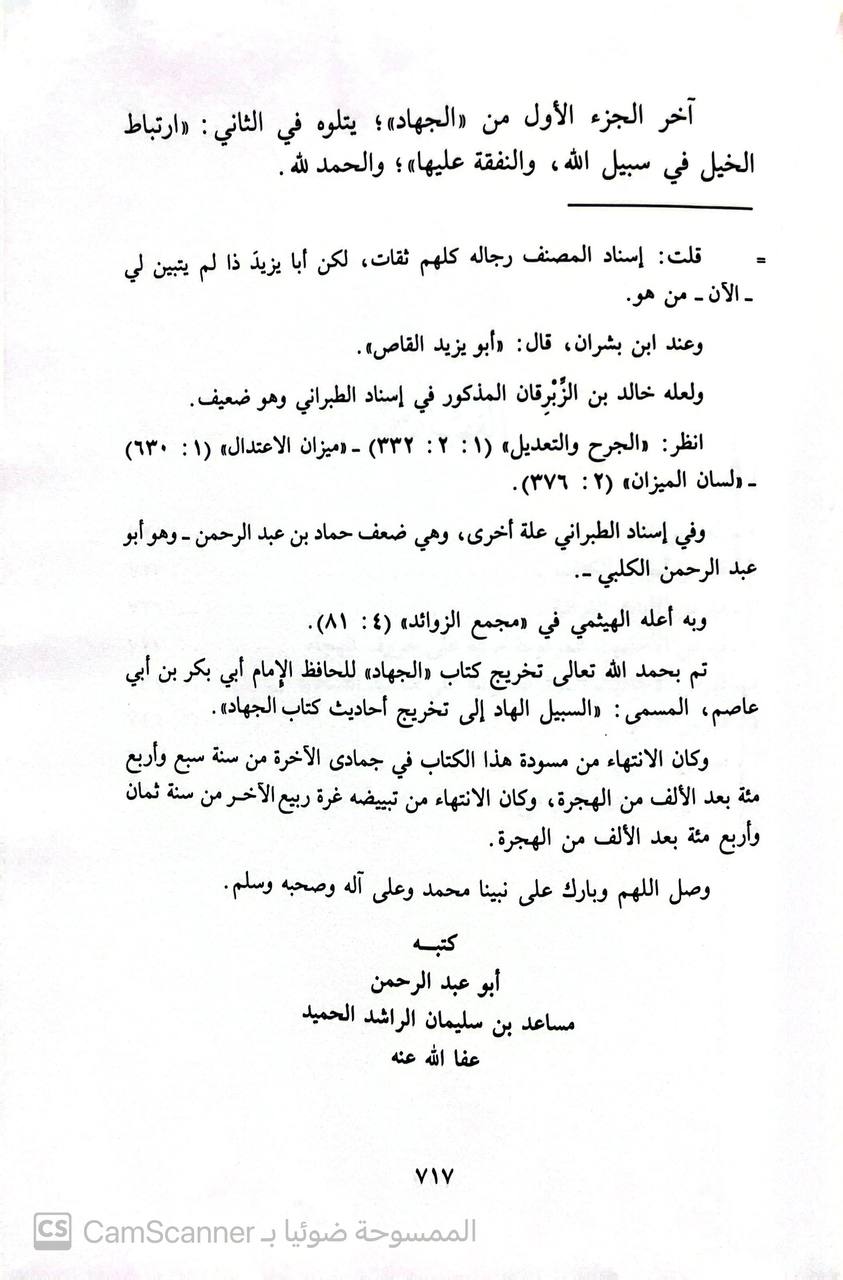 آخر الجزء الأول من «الجهاد»؛ يتلوه في الثاني: «ارتباط
الخيل في سبيل الله، والنفقة عليها»؛ والحمد لله.
= قلت: إسناد المصنف رجاله كلهم ثقات، لكن أبا يزيدَ ذا لم يتبين لي
ـ الآن ـ من هو.
وعند ابن بشران، قال: «أبو يزيد القاص».
ولعله خالد بن الزِّبْرِقان المذكور في إسناد الطبراني وهو ضعيف.
انظر: «الجرح والتعديل» (١: ٢: ٣٣٢) ـ «ميزان الاعتدال» (١: ٦٣٠)
ـ «لسان الميزان» (٢: ٣٧٦).
وفي إسناد الطبراني علة أخرى، وهي ضعف حماد بن عبد الرحمن ـ وهو أبو
عبد الرحمن الكلبي ـ.
وبه أعله الهيثمي في «مجمع الزوائد» (٤: ٨١).
تم بحمد الله تعالى تخريج كتاب «الجهاد» للحافظ الإمام أبي بكر بن أبي
عاصم، المسمى: «السبيل الهاد إلى تخريج أحاديث كتاب الجهاد».
وكان الانتهاء من مسودة هذا الكتاب في جمادى الآخرة من سنة سبع وأربع
مئة بعد الألف من الهجرة، وكان الانتهاء من تبييضه غرة ربيع الآخر من سنة ثمان
وأربع مئة بعد الألف من الهجرة.
وصل اللهم وبارك على نبينا محمد وعلى آله وصحبه وسلم.
كتبـــه
أبو عبد الرحمن
مساعد بن سليمان الراشد الحميد
عفا الله عنه
٧١٧
CS CamScanner الممسوحة ضوئيا بـ